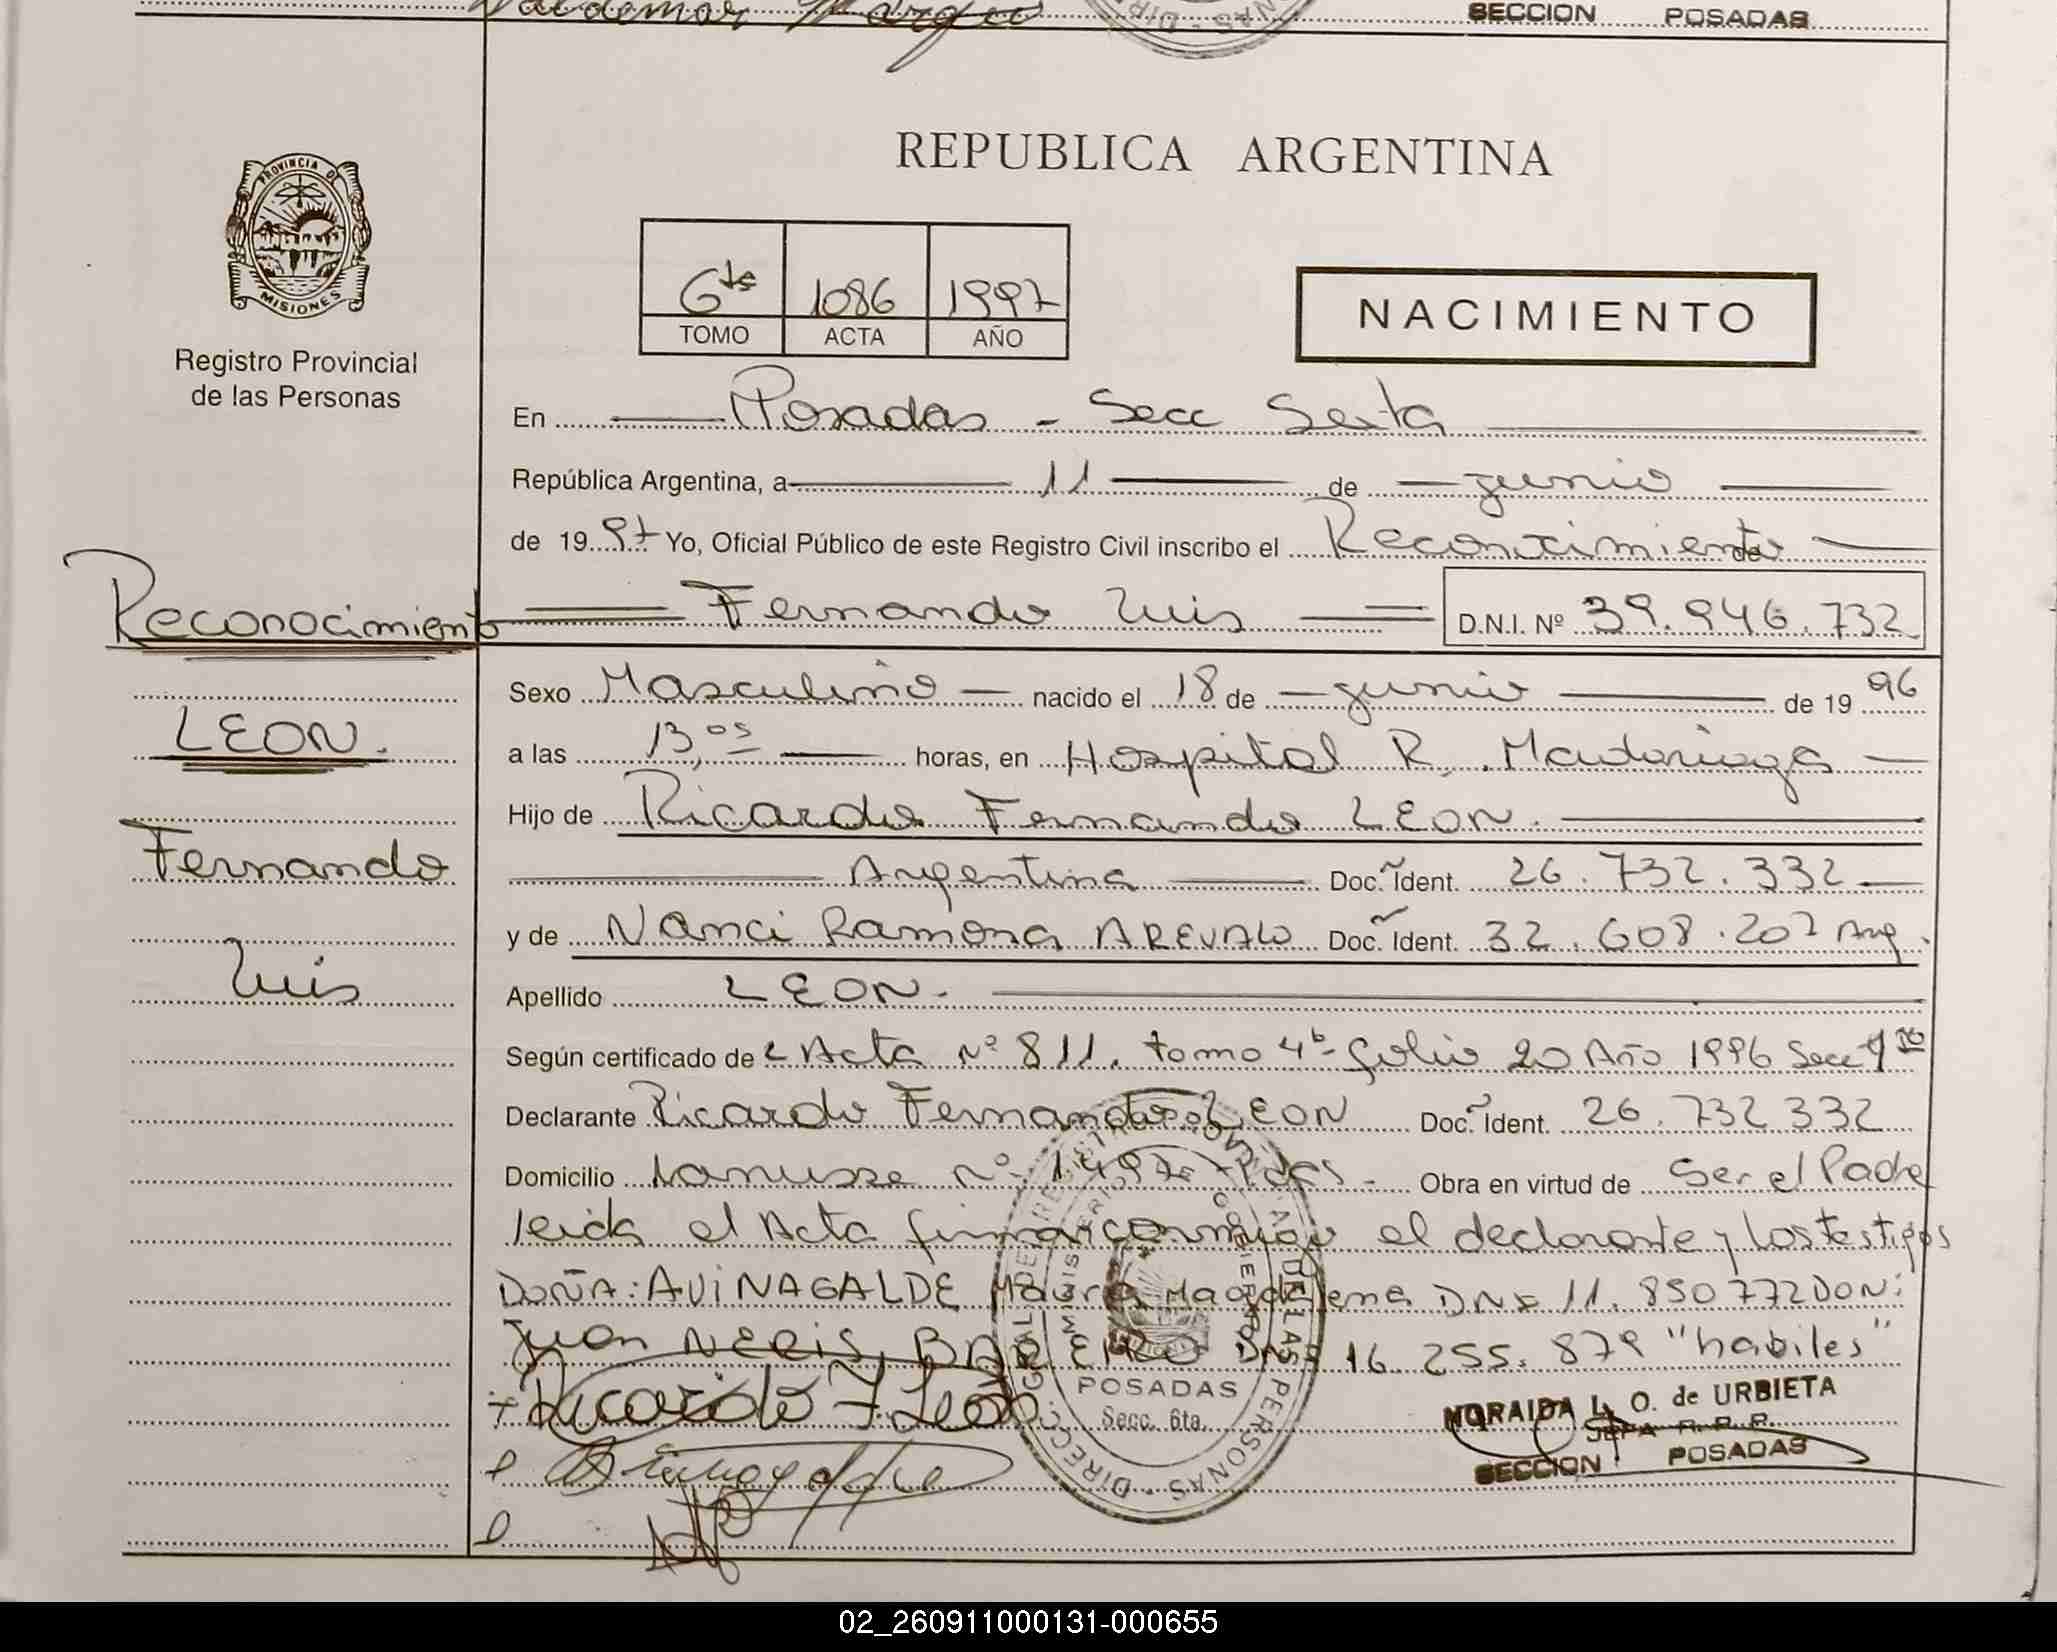 Valdemar
SECCION POSADAS
PROVINCIA DE
MISIONES
Registro Provincial
de las Personas
REPUBLICA ARGENTINA
6to 1086 1997
TOMO ACTA AÑO
NACIMIENTO
En Posadas - Secc Sexta
República Argentina, a 11 de junio
de 1997 Yo, Oficial Público de este Registro Civil inscribo el Reconocimiento de
Reconocimiento
Fernando Luis D.N.I. Nº 39.946.732
Sexo Masculino nacido el 18 de junio de 1996
LEON.
a las 13,05 horas, en Hospital R. Madariaga
Hijo de Ricardo Fernando LEON.
Fernando
Argentina Doc. Ident. 26.732.332
y de Nanci Ramona AREVALO Doc. Ident. 32.608.207 Arg.
Luis
Apellido LEON.
Según certificado de Acta Nº 811. tomo 4º folio 20 Año 1996 Secc 1ra
Declarante Ricardo Fernando LEON Doc. Ident. 26.732 332
Domicilio Lanusse Nº Pdas. Obra en virtud de Ser el Padre
leida el Acta firman conmigo el declarante y los testigos
DOÑA: AVINAGALDE Maura Magdalena DNI 11.850 772 DON:
Juan NERIS, 16.255.879 "habiles"
Ricardo F. Leon
POSADAS
Secc. 6ta.
NORAIDA L. O. de URBIETA
JEFA R. P. P.
SECCION POSADAS
02_260911000131-000655